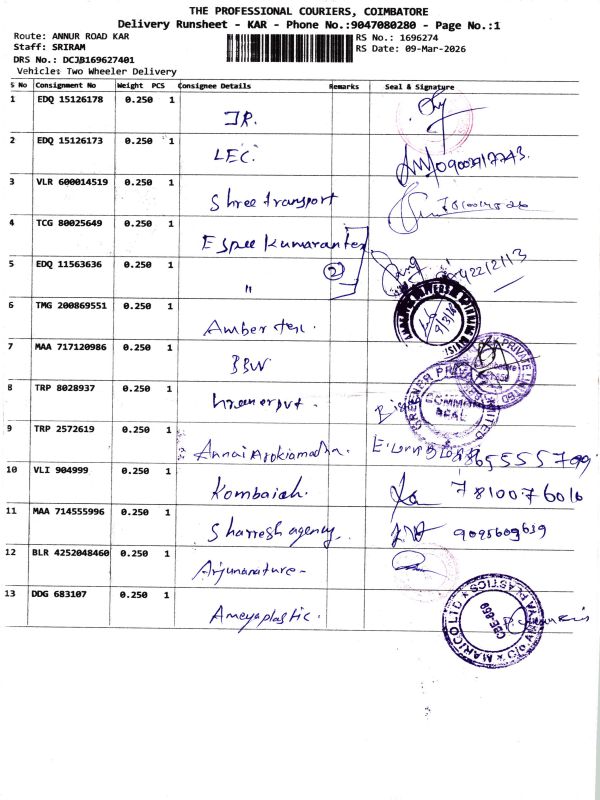 THE PROFESSIONAL COURIERS, COIMBATORE
Delivery Runsheet - KAR - Phone No.:9047080280 - Page No.:1
Route: ANNUR ROAD KAR
RS No.: 1696274
Staff: SRIRAM
RS Date: 09-Mar-2026
DRS No.: DCJB169627401
Vehicle: Two Wheeler Delivery
S No Consignment No Weight PCS Consignee Details Remarks Seal & Signature
1 EDQ 15126178 0.250 1 JR.
2 EDQ 15126173 0.250 1 LEC.
3 VLR 600014519 0.250 1 Shree transport
4 TCG 80025649 0.250 1 Espee Kumaran tex
5 EDQ 11563636 0.250 1 " 2
6 TMG 200869551 0.250 1 Amber tex. 9/3/26
7 MAA 717120986 0.250 1 BBW
8 TRP 8028937 0.250 1 COMMON SEAL
9 TRP 2572619 0.250 1 Annai Arokiamadha.
10 VLI 904999 0.250 1 Kombaiah. 7810076016
11 MAA 714555996 0.250 1 Sharresh agency 9095609639
12 BLR 4252048460 0.250 1 Arjunanature-
13 DDG 683107 0.250 1 Ameyaplastic. MARICO LTD CBE-659